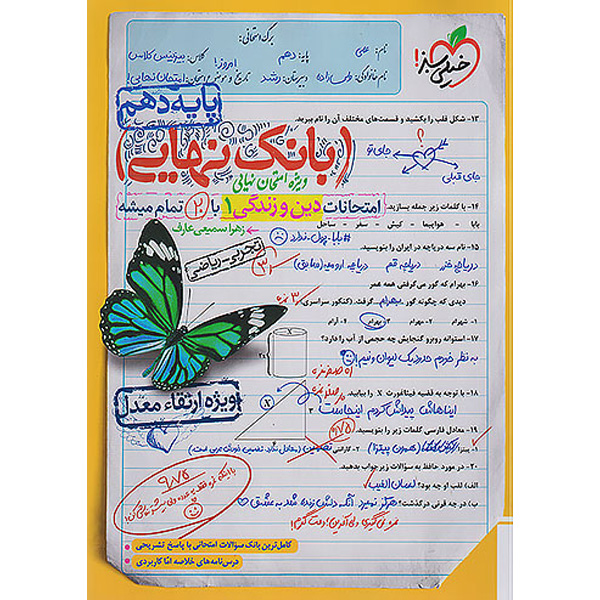 برگ امتحانی:
نام: علی
پایه: دهم
کلاس: بیزینس کلاس
نام خانوادگی:
دبیرستان: رشد
تاریخ و موضوع امتحان: امروز! امتحان نهایی!
خیلی سبز!
پایه دهم
۱۳- شکل قلب را بکشید و قسمت‌های مختلف آن را نام ببرید.
؟
جای تو
جای قبلی
(بانک نهایی)
ویژه امتحان نهایی
۱۴- با کلمات زیر جمله بسازید.
امتحانات دین و زندگی ۱ با ۲۰ تمام میشه
بابا - هواپیما - کیش - سفر - ساحل
زهرا سمیعی عارف
#بابا-پول-ندارد
تجربی - ریاضی
۱۵- نام سه دریاچه در ایران را بنویسید.
دریاچه خزر دریاچه قم دریاچه ارومیه (سابق)
۱۶- بهرام که گور می‌گرفتی همه عمر
دیدی که چگونه گور بهرام گرفت. (کنکور سراسری)
۱- شهرام ۲- مهرام ۳- بهرام ۴- آرام
۱۷- استوانه روبرو گنجایش چه حجمی از آب را دارد؟
به نظر خودم حدود یک لیوان و نیم!
۱۸- با توجه به قضیه فیثاغورث X را بیابید.
ایناهاش پیداش کردم اینجاست
X
ویژه ارتقاء معدل
۱۹- معادل فارسی کلمات زیر را بنویسید.
۱- پیتزا (همون پیتزا) ۲- گارانتی
۲۰- در مورد حافظ به سؤالات زیر جواب بدهید.
الف) لقب او چه بود؟ لسان الغیب
ب) در چه قرنی درگذشت؟ هرگز نمیرد آنکه دلش زنده شد به عشق
۹/۷۵
کامل‌ترین بانک سوالات امتحانی با پاسخ تشریحی
درس‌نامه‌های خلاصه امّا کاربردی